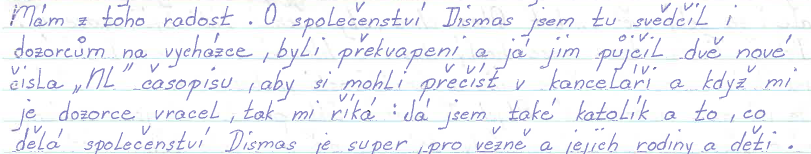 Mám z toho radost. O společenství Dismas jsem tu svědčil i
dozorcům na vycházce, byli překvapeni a já jim půjčil dvě nové
čísla „NL" časopisu, aby si mohli přečíst v kanceláři a když mi
je dozorce vracel, tak mi říká: Já jsem také katolík a to, co
dělá společenství Dismas je super, pro vězně a jejich rodiny a děti.